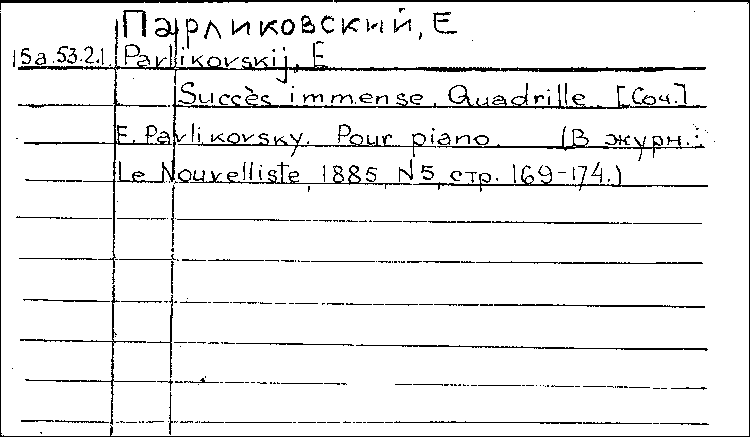 Парликовский, Е
15a.53.2.1. Parlikovskij, E
Succès immense. Quadrille. [Соч.]
E. Parlikovsky. Pour piano. (В журн.:
Le Nouvelliste, 1885, N5, стр. 169-174.)